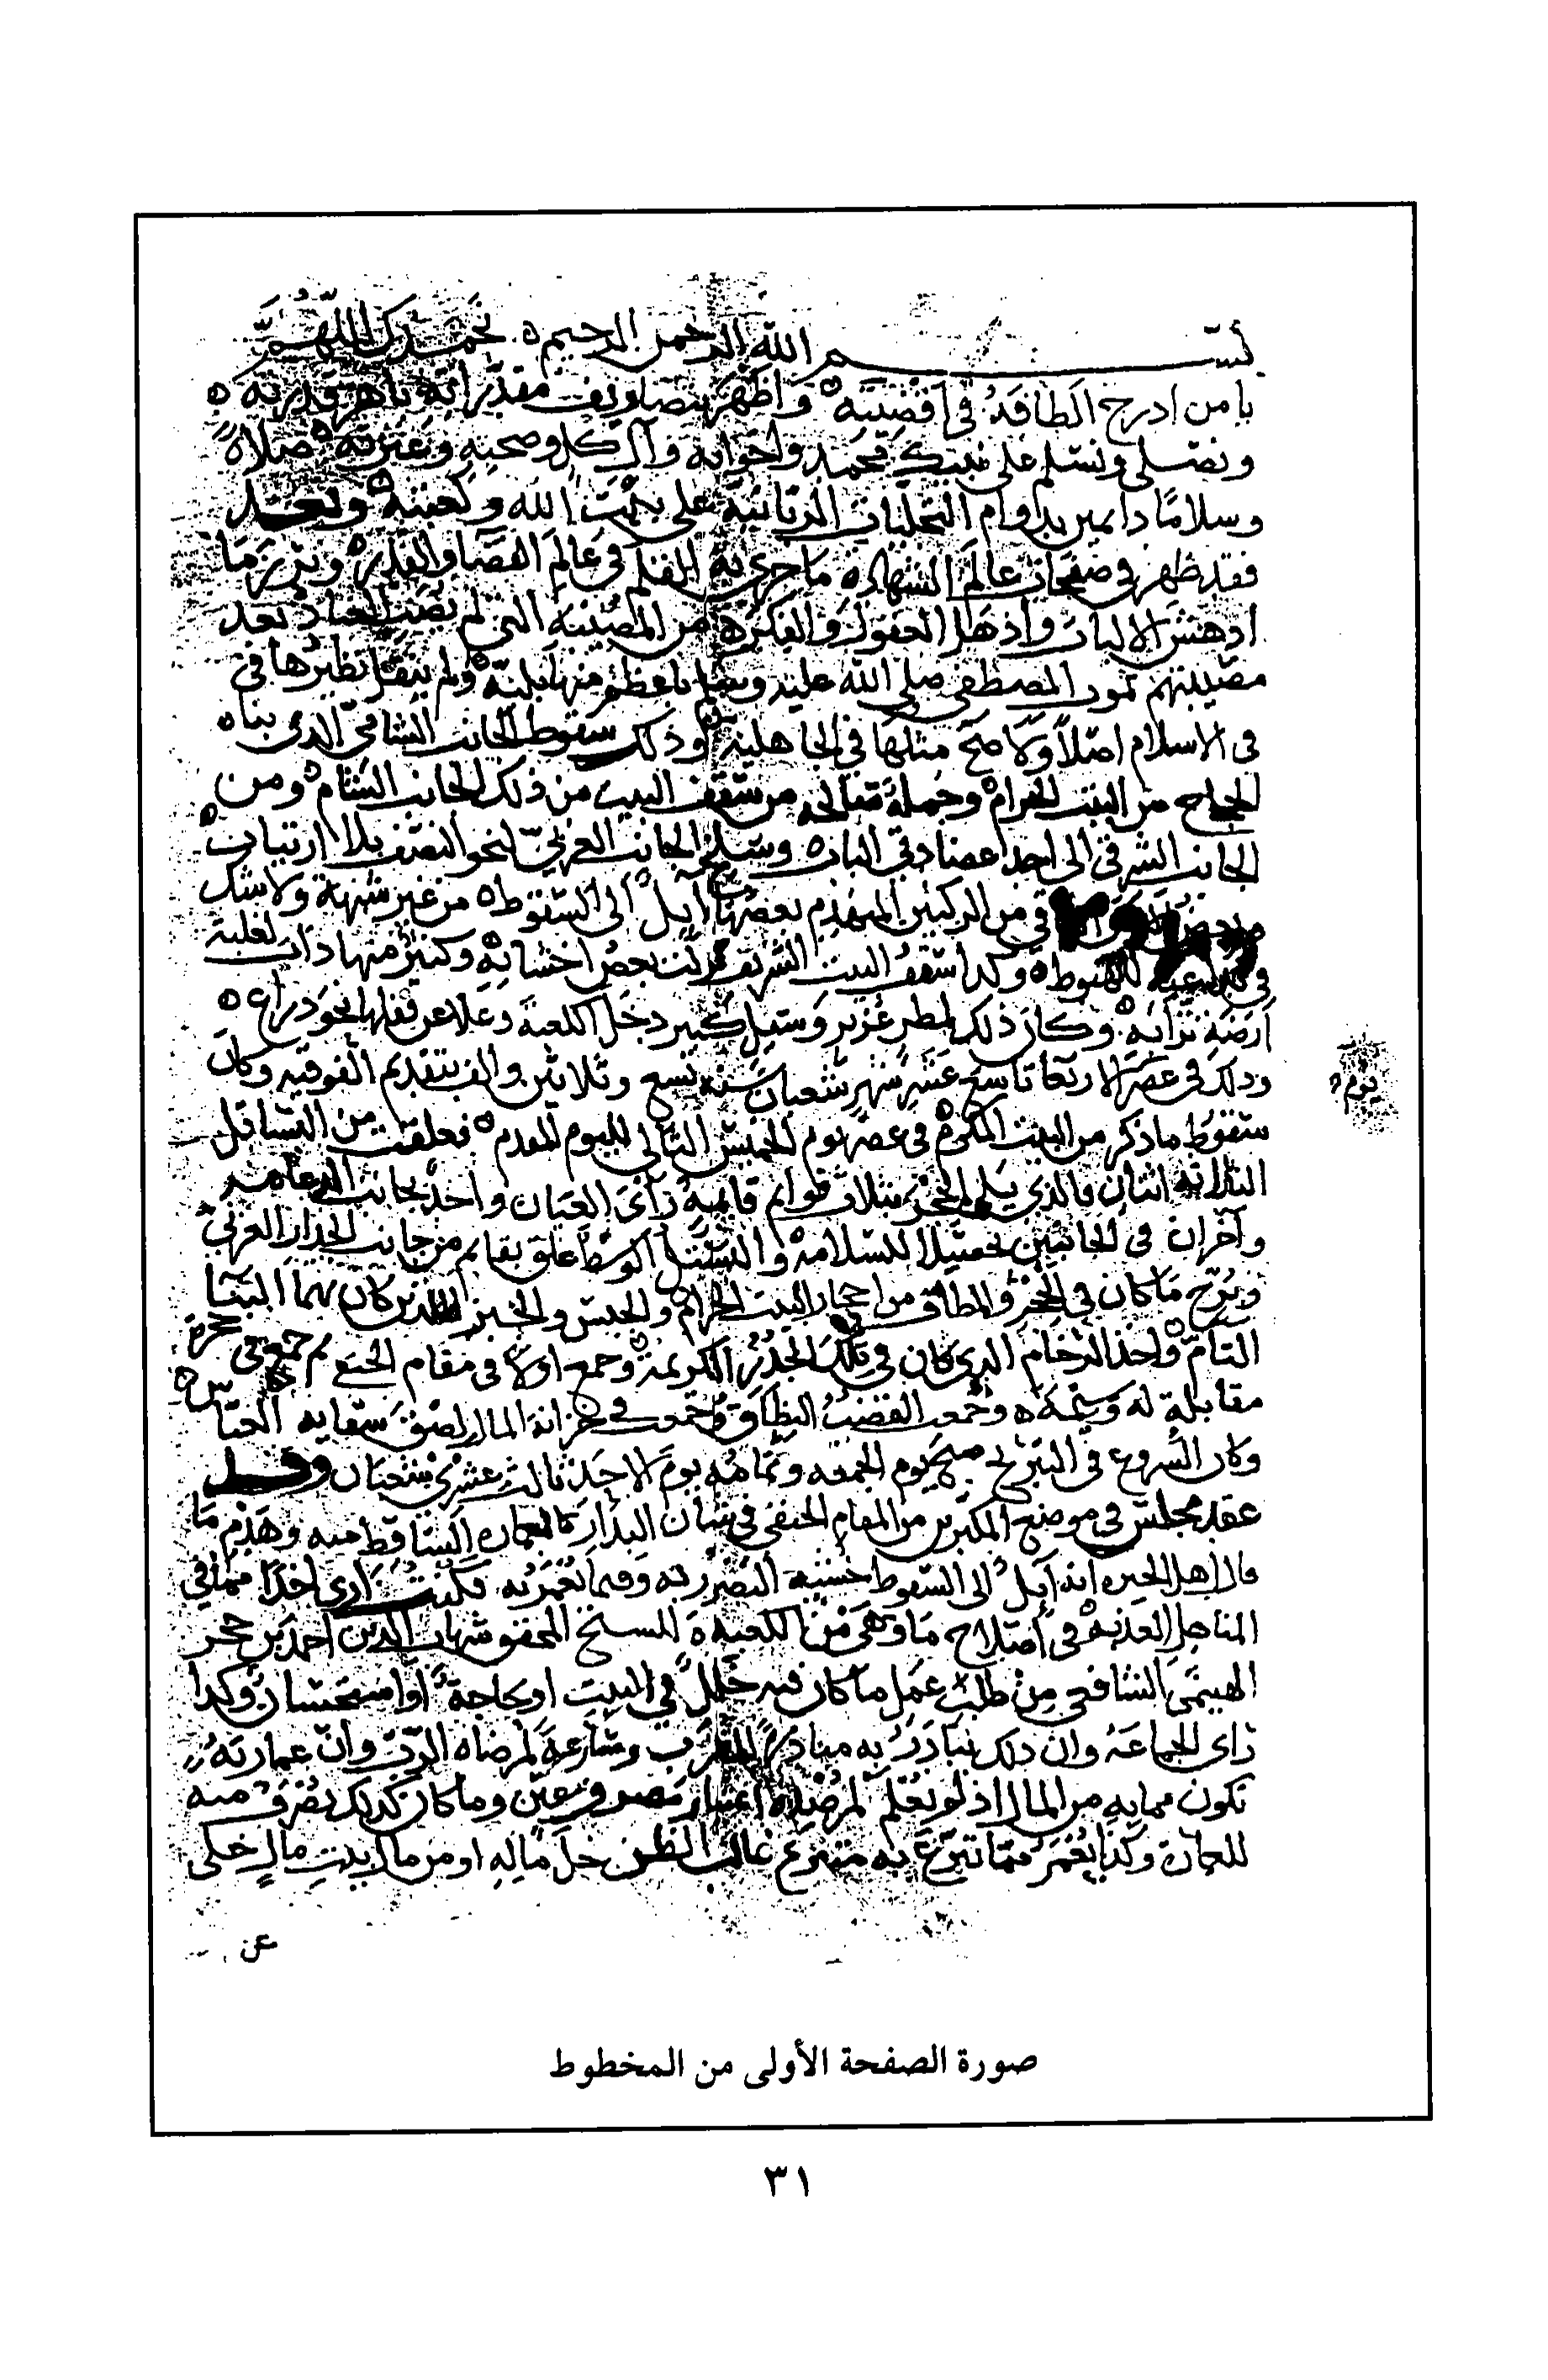 بسم الله الرحمن الرحيم ه نحمدك اللهم
يا من ادرج الطافه في اقضيته ه واظهر بتصاريف مقدراته باهر قدرته ه
ونصلي ونسلم على نبيك محمد واخوانه وآل كل وصحبه وعترته ه صلاة
وسلاما دايمين بدوام التجليات الربانية على بيت الله وكعبته ه وبعد
فقد ظهر في صفحات عالم الشهادة ه ما جرى به القلم في عالم القضا والقدر ه وبرز ما
ادهش الالباب واذهل العقول والفكر ه من المصيبة التي لم تصب العباد بعد
مصيبتهم بموت المصطفى صلى الله عليه وسلم باعظم منها بلية ه ولم يتفق نظيرها في
في الاسلام اصلا ولا صح مثلها في الجاهلية ه وذلك سقوط الجانب الشامي الذي بناه
الحجاج من البيت الحرام ه وجملة معالجه من سقف البيت من ذلك الجانب الشام ه ومن
الجانب الشرقي الى احد اعضادتي الباب ه وسلخ الجانب الغربي نحو النصف بلا ارتياب ه
من الركنين المنهدم بعضها آيل الى السقوط ه من غير شبهة ولا شك
في للهبوط ه وكذا سقف البيت الشريف نزلت بعض اخشابه ه وكثير منها ذاب لغلبة
ارضة ترابه ه وكان ذلك لمطر غزير وسيل كبير دخل الكعبة وعلا عن قفلها نحو ذراع ه
وذلك في عصر الاربعا تاسع عشر شهر شعبان سنة تسع وثلاثين والف بتقديم الفوقيه وكان
سقوط ما ذكر من البيت المكرم ه في عصر يوم الخميس التالي لليوم المقدم ه فعلقت من
الثلاثه اثنان فالذي يلي الحجر بثلاث قوايم قايمة رأى العيان واحد بجانب الدعامه
وآخران في الجانبين تحصيلا للسلامة ه والوسط علق بقايم من جانب الجدار الغربي
وبرح ما كان في الحجر والمطاف من احجار البيت الحرام ه والجبس والجير اللذين كان بهما البنا
التام ه واخذ الرخام الذي كان في تلك الجدر الكريمة ه وجمع اولا في مقام الحنفي ثم جمع في حجرة
مقابلة له وسيمة ه وجمعت الفضة وجمعت في خزانة المال لصق سقاية العباس ه
وكان الشروع في التبريح صبح يوم الجمعه وتمامه يوم الاحد ثالث عشري شعبان وقد
عقد مجلس في موضع المكبرين من المقام الحنفي في شان البدار لعمارة الساقط منه وهدم ما
قال اهل الخبره انه آيل الى السقوط خشية التضرر به وفيما تعمر به فكتبت ارى اخذا مما في
المناهل العذبة ه في اصلاح ما وهى من الكعبة ه للشيخ المحقق شهاب الدين احمد بن حجر
الهيتمي الشافعي من طلب عمل ما كان فيه خلل في البيت او لحاجة او استحسان وكذا
راى الجماعة وان ذلك يبادر به مبادرة للتقرب ومسارعة لمرضاة الرب وان عمارته
تكون مما به من المال اذ لم يعلم لمرصده اعتبار مصرف معين وما كان كذلك يصرف منه
للعمارة وكذا تعمر مما تبرع به متبرع غالب الظن حل ماله او من مال بيت مال خلي
عن
يوم
صورة الصفحة الأولى من المخطوط
٣١